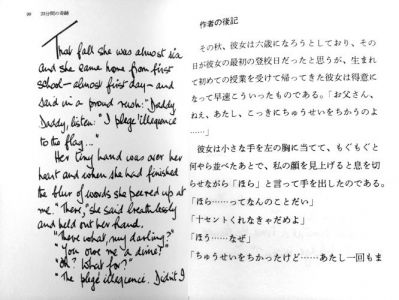 90 23分間の奇跡
That fall she was almost six
and she came home from first
school—almost first day—and
said in a proud rush: "Daddy
Daddy, listen: "I plege 'illegence
to the flag..."
Her tiny hand was over her
heart and when she had finished
the blur of words she peered up at
me. "There," she said breathlessly
and held out her hand.
"There what, my darling?"
"You owe me a dime!"
"Oh? What for?"
"The plege illegence. Didn't I
作者の後記
その秋、彼女は六歳になろうとしており、その
日が彼女の最初の登校日だったと思うが、生まれ
て初めての授業を受けて帰ってきた彼女は得意に
なって早速こういったものである。「お父さん、
ねぇ、あたし、こっきにちゅうせいをちかうのよ
……」
彼女は小さな手を左の胸に当てて、もぐもぐと
何やら並べたあとで、私の顔を見上げると息を切
らせながら「ほら」と言って手を出したのである。
「ほら……ってなんのことだい」
「十セントくれなきゃだめよ」
「ほう……なぜ」
「ちゅうせいをちかったけど……あたし一回もま